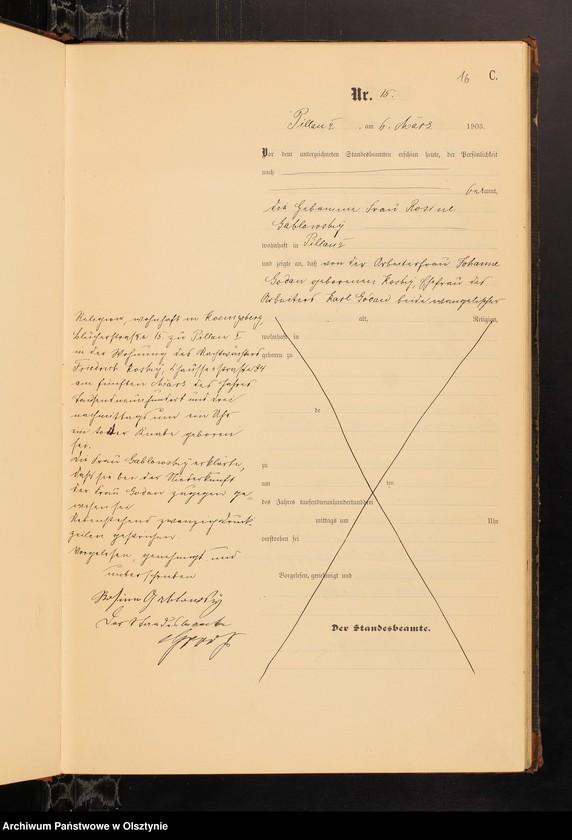 16 C.
Nr. 15.
Pillau I, am 6. März 1903.
Vor dem unterzeichneten Standesbeamten erschien heute, der Persönlichkeit
nach
bekannt,
die Hebamme Frau Rosine
Gablowsky
wohnhaft in Pillau I
und zeigte an, daß von der Arbeiterfrau Johanne
Godau geborenen Kosky, Ehefrau des
Arbeiters Karl Godau beide evangelischer
alt, Religion,
wohnhaft in
geboren zu
de
zu
am ten
des Jahres tausendneunhundertunddrei
mittags um Uhr
verstorben sei
Vorgelesen, genehmigt und
Der Standesbeamte.
Religion, wohnhaft in Koenigsberg,
Blücherstraße 15 zu Pillau I
in der Wohnung des Nachtwächters
Friedrich Kosky, Chausseestraße 24
am fünften März des Jahres
tausendneunhundert und drei
nachmittags um ein Uhr
ein todter Knabe geboren
sei.
Die Frau Gablowsky erklärte,
daß sie bei der Niederkunft
der Frau Godau zugegen ge-
wesen sei
Nebenstehend zwanzig Druck-
zeilen gestrichen
Vorgelesen, genehmigt und
unterschrieben
Rosine Gablowsky
Der Standesbeamte
Archiwum Państwowe w Olsztynie